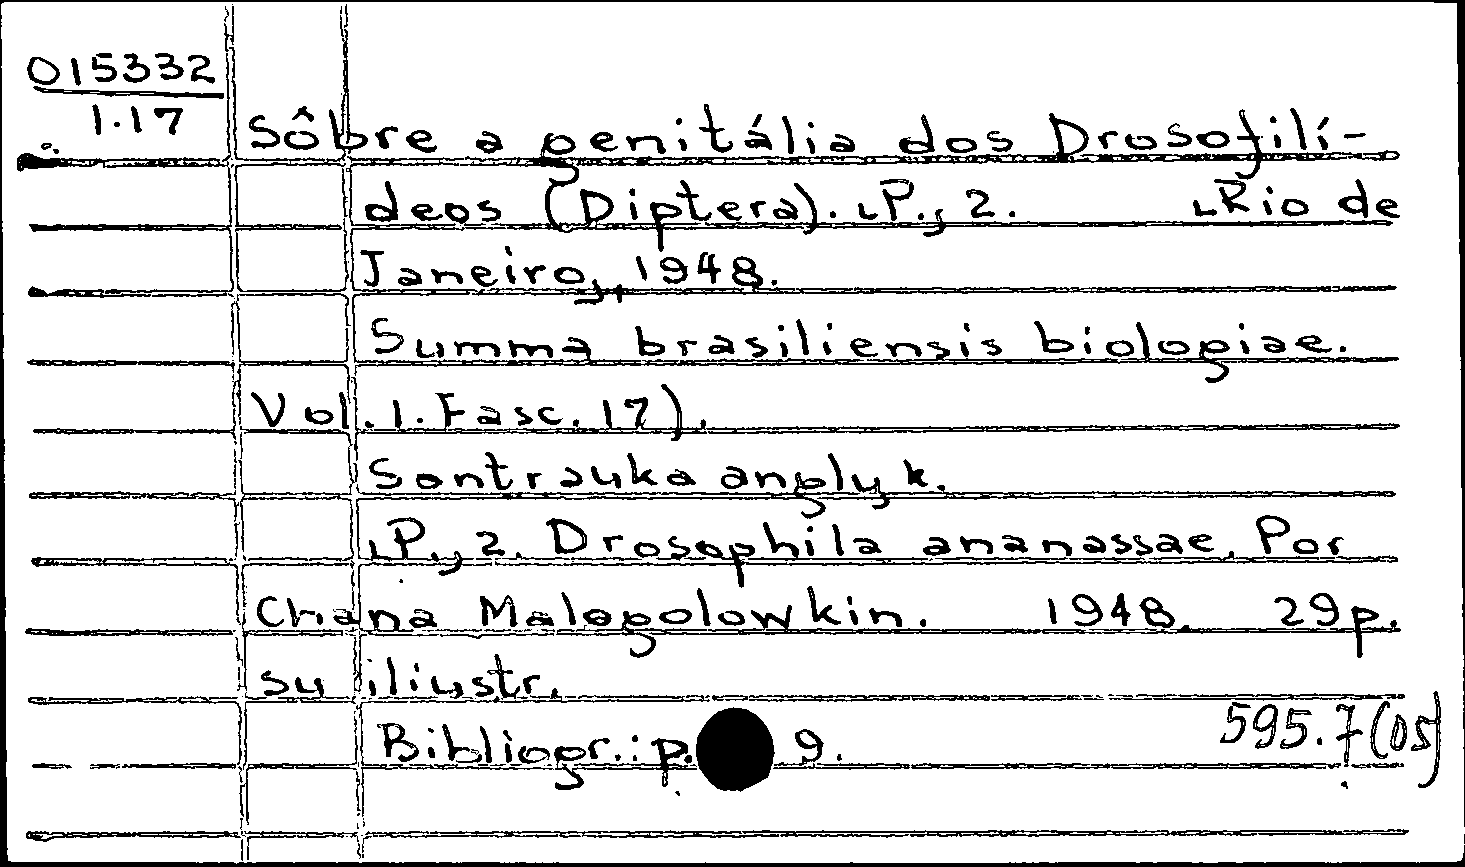 015332
1.17
Sôbre a genitália dos Drosofilí-
deos (Diptera). [P., 2. [Rio de
Janeiro], 1948.
Summa brasiliensis biologiae.
Vol. 1. Fasc. 17).
Santrauka anglų k.
[P., 2. Drosophila ananassae. Por
Chana Malogolowkin. 1948. 29p.
su iliustr.
Bibliogr.: p. 9.
595.7(05)